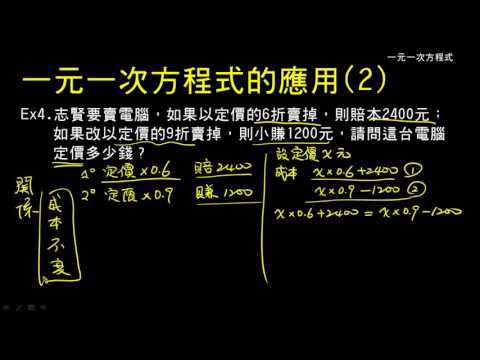 一元一次方程式
一元一次方程式的應用(2)
Ex4.志賢要賣電腦，如果以定價的6折賣掉，則賠本2400元；
如果改以定價的9折賣掉，則小賺1200元，請問這台電腦
定價多少錢？
關係
成本不變
1° 定價×0.6 賠2400
2° 定價×0.9 賺1200
設定價x元
成本 x×0.6+2400 ①
x×0.9-1200 ②
x×0.6+2400=x×0.9-1200